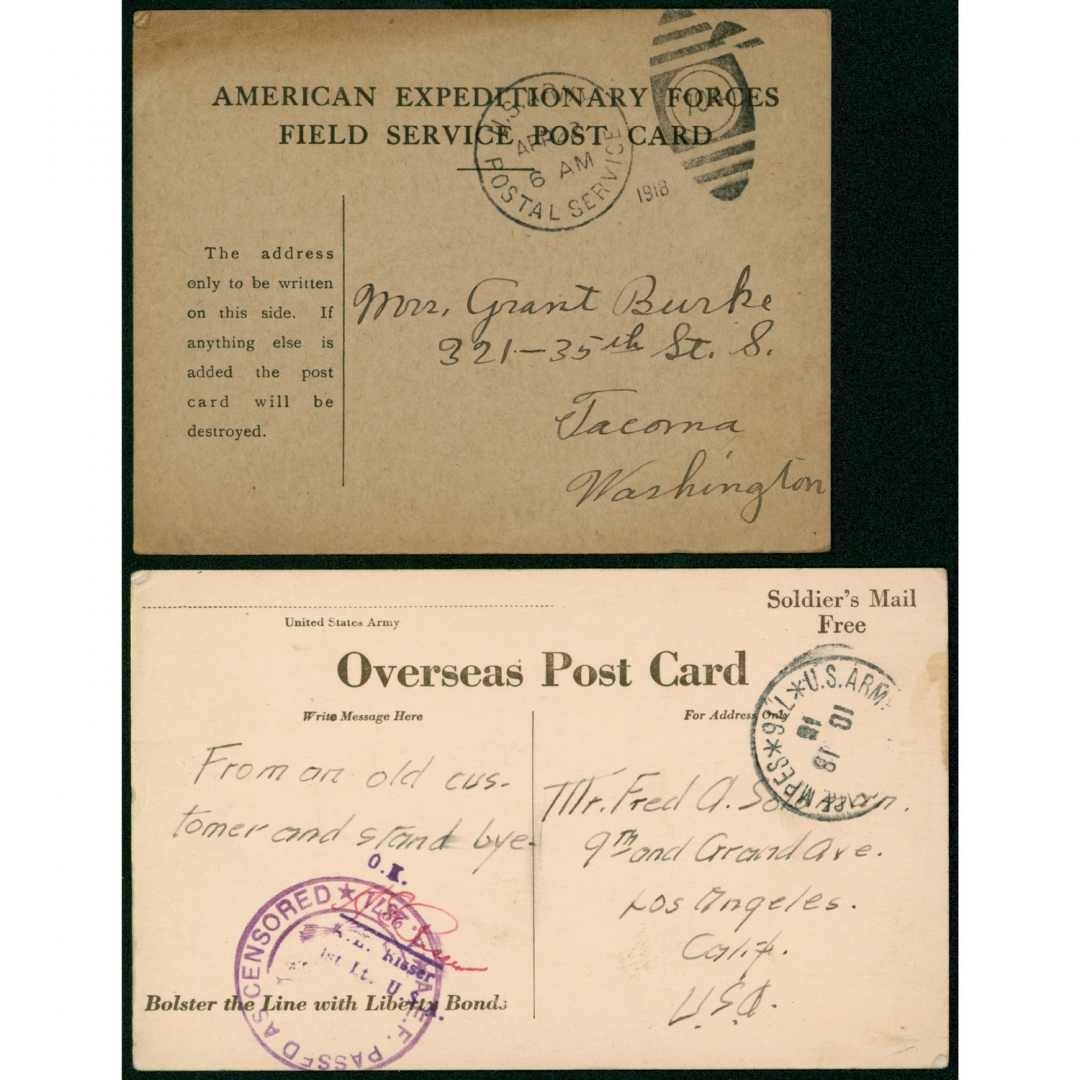 AMERICAN EXPEDITIONARY FORCES
FIELD SERVICE POST CARD
APR
6 AM
POSTAL SERVICE
1918
The address
only to be written
on this side. If
anything else is
added the post
card will be
destroyed.
Mrs. Grant Burke
321-35th St. S.
Tacoma
Washington
Soldier's Mail
Free
United States Army
Overseas Post Card
Write Message Here
For Address Only
U.S. ARMY
M.P.E.S.
716
10
18
18
From an old cus-
tomer and stand bye-
Mr. Fred A.
9th and Grand Ave.
Los Angeles.
Calif.
U.S.A.
O.K.
1st Lt. U.S.A.
A.E.F. PASSED AS CENSORED
Bolster the Line with Liberty Bonds